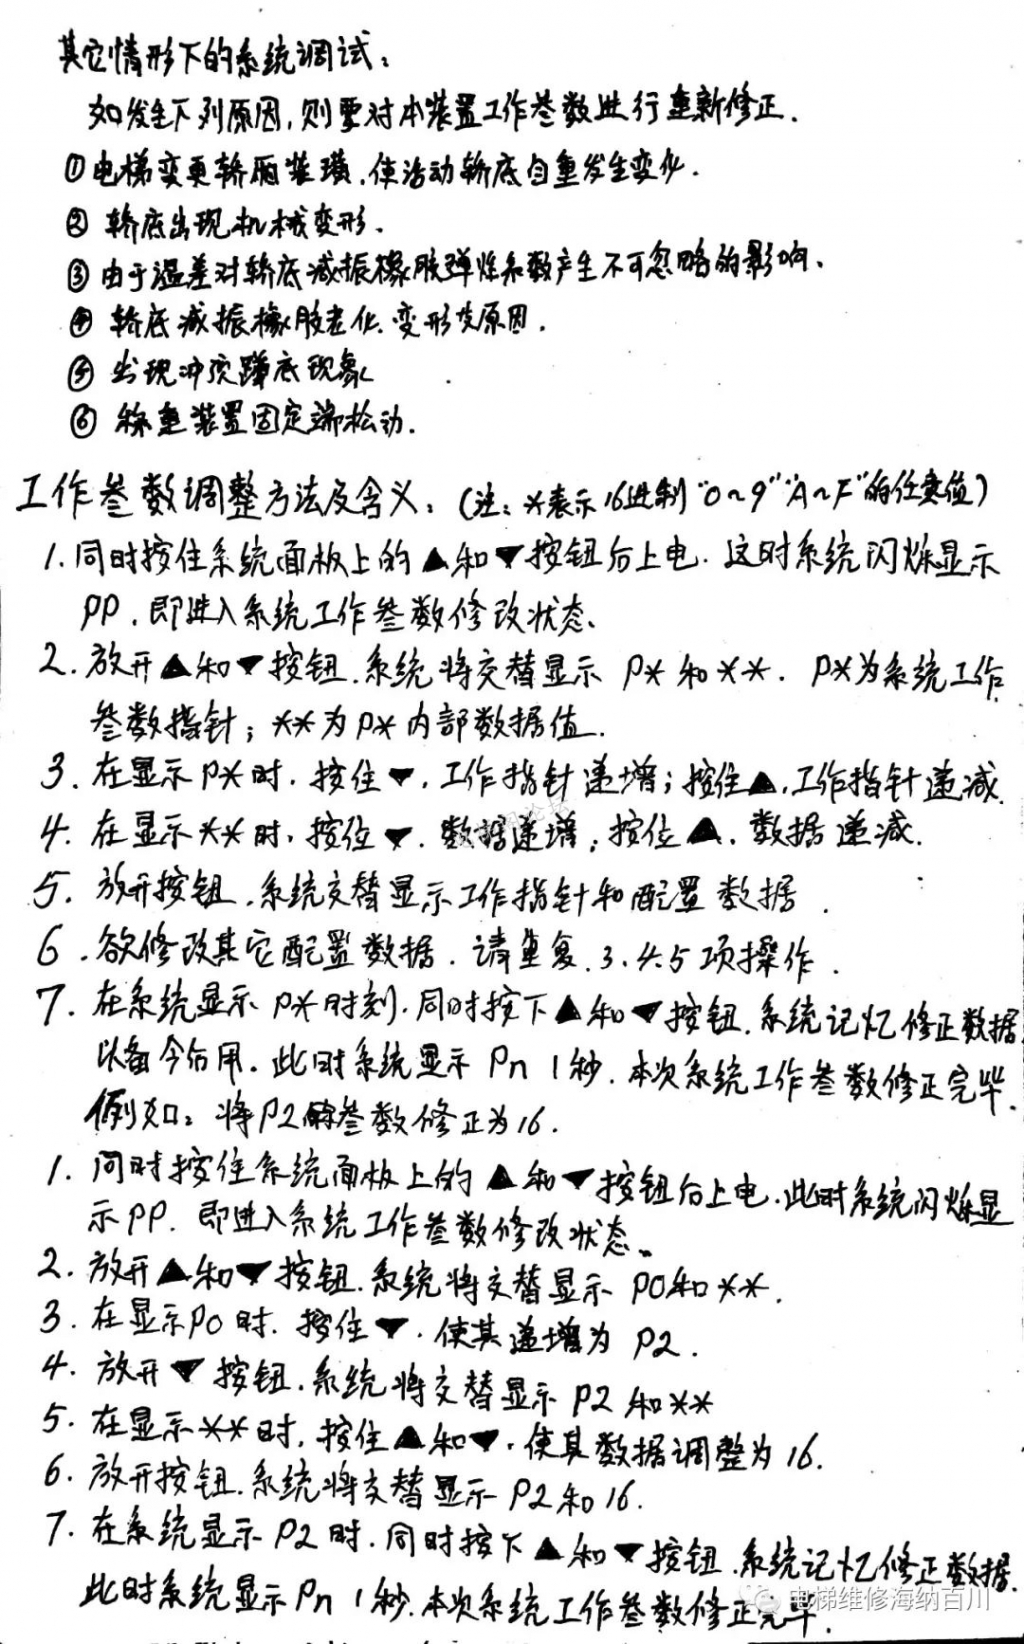 其它情形下的系统调试：
如发生下列原因,则要对本装置工作参数进行重新修正.
①电梯变更轿厢装璜,使活动轿底自重发生变化.
② 轿底出现机械变形.
③由于温差对轿底减振橡胶弹性系数产生不可忽略的影响.
④ 轿底减振橡胶老化.变形等原因.
⑤ 出现冲顶蹲底现象
⑥ 称重装置固定端松动.
工作参数调整方法及含义：(注：*表示16进制"0~9""A~F"的任意值)
1.同时按住系统面板上的▲和▼按钮后上电.这时系统闪烁显示
PP.即进入系统工作参数修改状态.
2.放开▲和▼按钮.系统将交替显示 P*和**. P*为系统工作
参数指针；**为P*内部数据值.
3.在显示P*时.按住▼.工作指针递增；按住▲.工作指针递减.
4.在显示**时.按住▼.数据递增；按住▲.数据递减.
5.放开按钮.系统交替显示工作指针和配置数据.
6.欲修改其它配置数据.请重复.3.4.5项操作.
7.在系统显示P*时刻.同时按下▲和▼按钮.系统记忆修正数据
以备今后用.此时系统显示 Pn 1秒.本次系统工作参数修正完毕.
例如：将P2的参数修正为16.
1.同时按住系统面板上的▲和▼按钮后上电.此时系统闪烁显
示PP.即进入系统工作参数修改状态.
2.放开▲和▼按钮.系统将交替显示 P0和**.
3.在显示P0时.按住▼.使其递增为 P2.
4.放开▼按钮.系统将交替显示P2和**
5.在显示**时.按住▲和▼.使其数据调整为16.
6.放开按钮.系统将交替显示P2和16.
7.在系统显示P2时.同时按下▲和▼按钮.系统记忆修正数据.
此时系统显示Pn 1秒.本次系统工作参数修正完毕.
电梯维修海纳百川